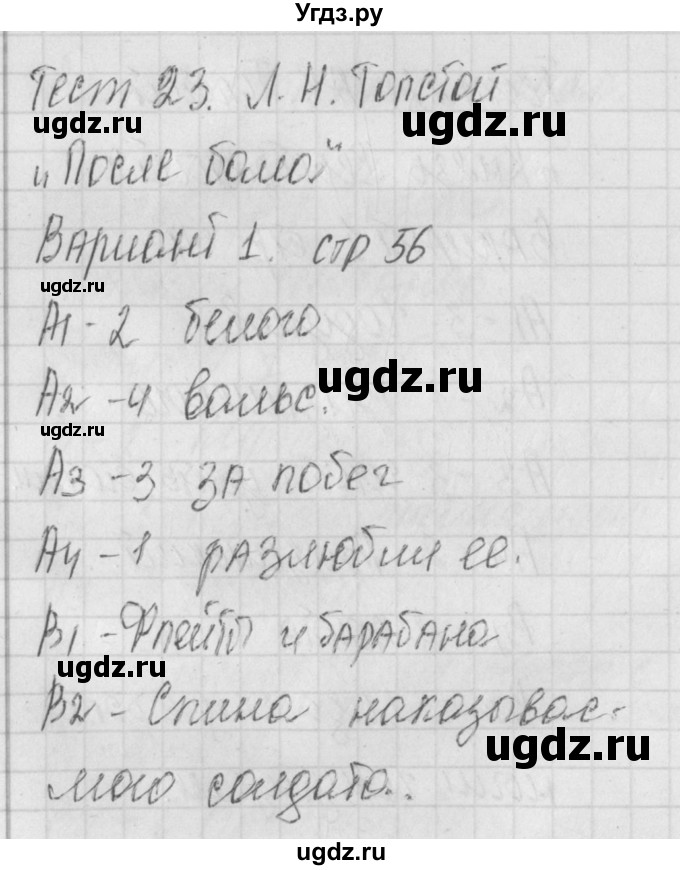 Угдз.ру
Тест 23. Л. Н. Толстой
ugdz.ru
ugdz.ru
„После бала"
Вариант 1. стр 56
ugdz.ru
А1 - 2 белого
ugdz.ru
А2 - 4 вальс.
ugdz.ru
А3 - 3 за побег
А4 - 1 разлюбил ее.
В1 - Флейты и барабана
ugdz.ru
В2 - Спина наказывае-
ugdz.ru
мого солдата.
ugdz.ru